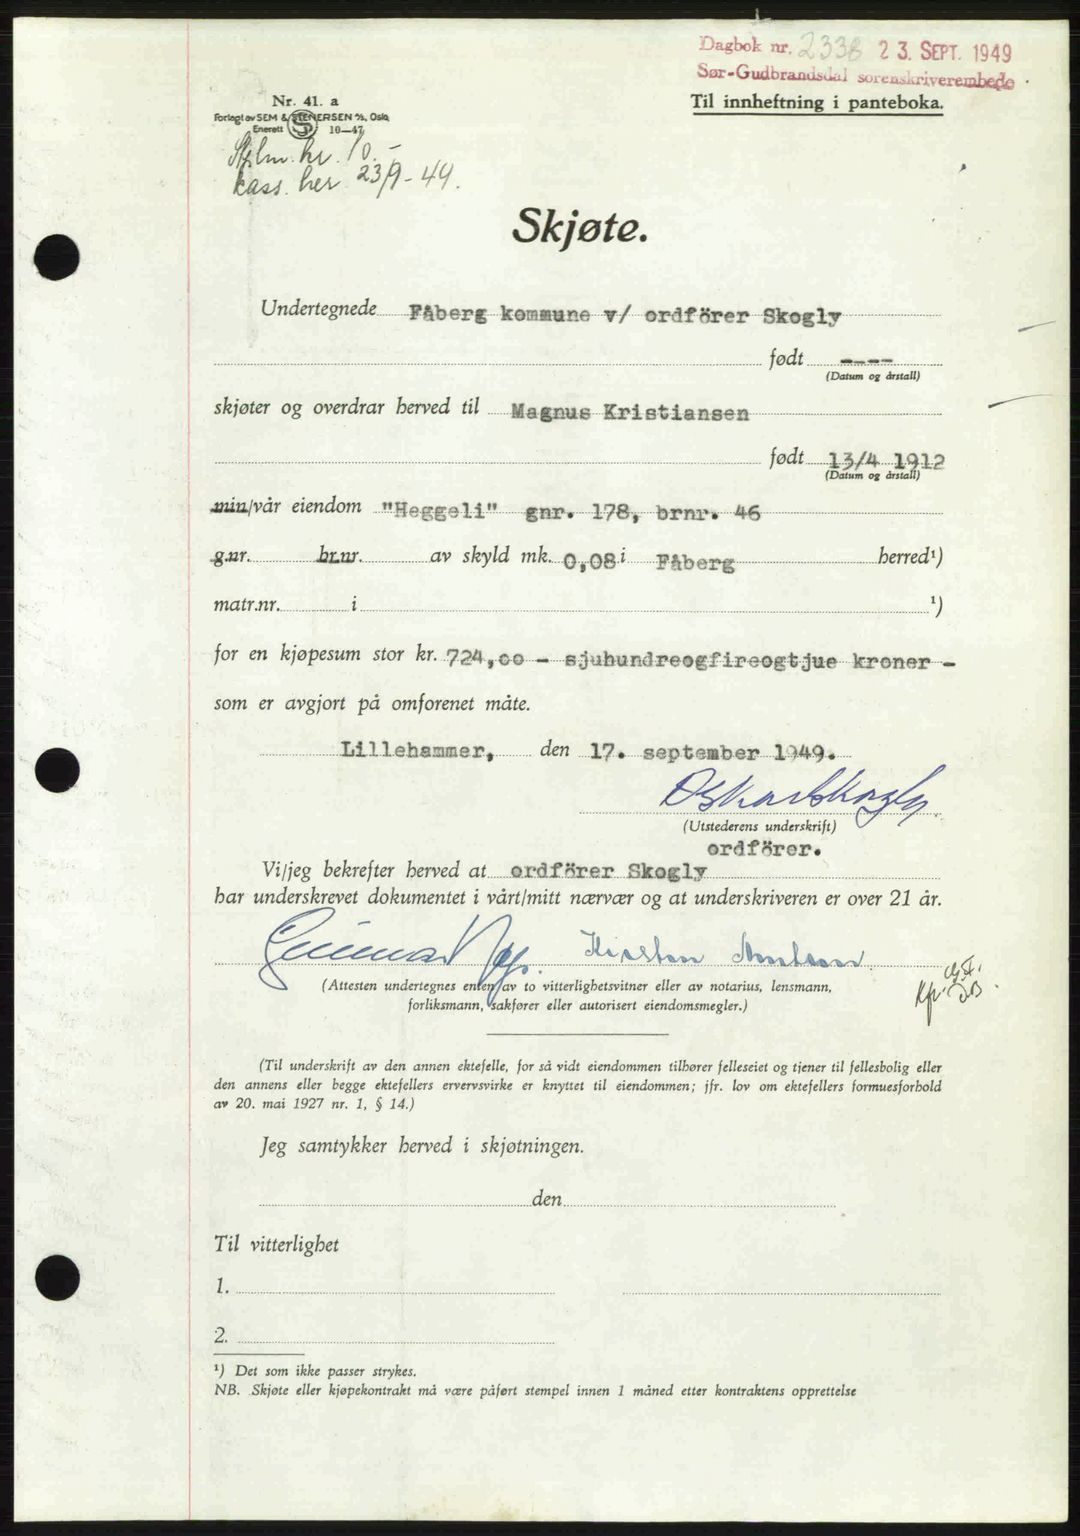 Dagbok nr. 2338 23. SEPT. 1949
Sør-Gudbrandsdal sorenskriverembede
Til innheftning i panteboka.
Nr. 41. a
Forlagt av SEM & STENERSEN A/S, Oslo
Enerett 10-47
kr. 10.-
kass. her 23/9-49.
Skjøte.
Undertegnede Fåberg kommune v/ ordförer Skogly
født ----
(Datum og årstall)
skjøter og overdrar herved til Magnus Kristiansen
født 13/4 1912
(Datum og årstall)
min/vår eiendom "Heggeli" gnr. 178, brnr. 46
g.nr. br.nr. av skyld mk. 0,08 i Fåberg herred¹)
matr.nr. i ¹)
for en kjøpesum stor kr. 724,00 - sjuhundreogfireogtjue kroner -
som er avgjort på omforenet måte.
Lillehammer, den 17. september 1949.
Oskar Skogly
(Utstederens underskrift)
ordförer.
Vi/jeg bekrefter herved at ordförer Skogly
har underskrevet dokumentet i vårt/mitt nærvær og at underskriveren er over 21 år.
Gunnar Kirsten
(Attesten undertegnes enten av to vitterlighetsvitner eller av notarius, lensmann,
forliksmann, sakfører eller autorisert eiendomsmegler.)
(Til underskrift av den annen ektefelle, for så vidt eiendommen tilhører felleseiet og tjener til fellesbolig eller
den annens eller begge ektefellers ervervsvirke er knyttet til eiendommen; jfr. lov om ektefellers formuesforhold
av 20. mai 1927 nr. 1, § 14.)
Jeg samtykker herved i skjøtningen.
den
Til vitterlighet
1.
2.
¹) Det som ikke passer strykes.
NB. Skjøte eller kjøpekontrakt må være påført stempel innen 1 måned etter kontraktens opprettelse